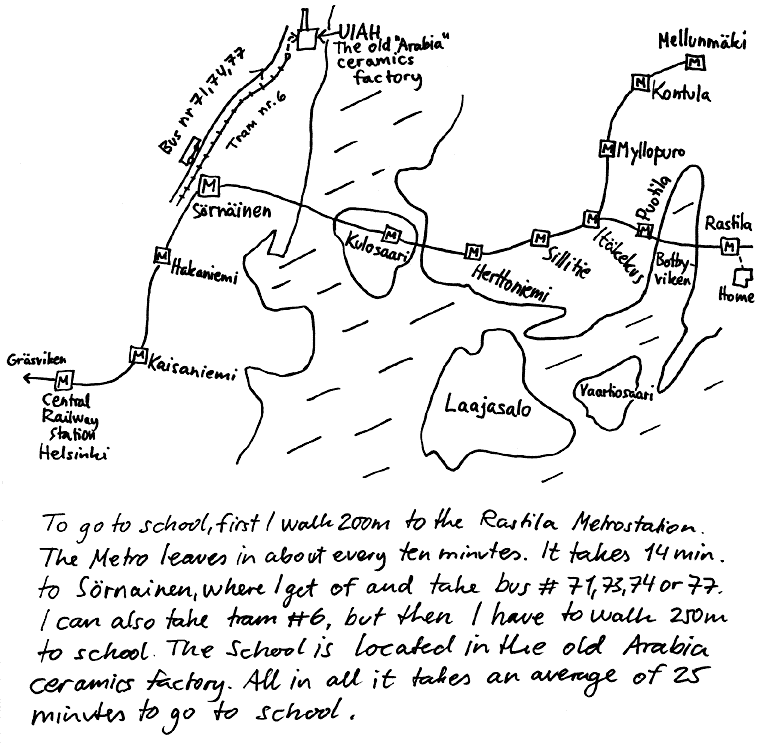 UIAH
The old "Arabia"
ceramics
factory
Bus nr 71,74,77
Tram nr.6
Mellunmäki
M
M
Kontula
M
Myllopuro
M
Sörnäinen
M
Kulosaari
M
Herttoniemi
M
Siilitie
M
Itäkekus
M
Puotila
Botby-
viken
Rastila
M
Home
M
Hakaniemi
M
Kaisaniemi
Gräsviken
M
Central
Railway
Station
Helsinki
Laajasalo
Vaartiosaari
To go to school, first I walk 200m to the Rastila Metrostation.
The Metro leaves in about every ten minutes. It takes 14 min.
to Sörnainen, where I get of and take bus # 71,73,74 or 77.
I can also take tram #6, but then I have to walk 250m
to school. The School is located in the old Arabia
ceramics factory. All in all it takes an average of 25
minutes to go to school.